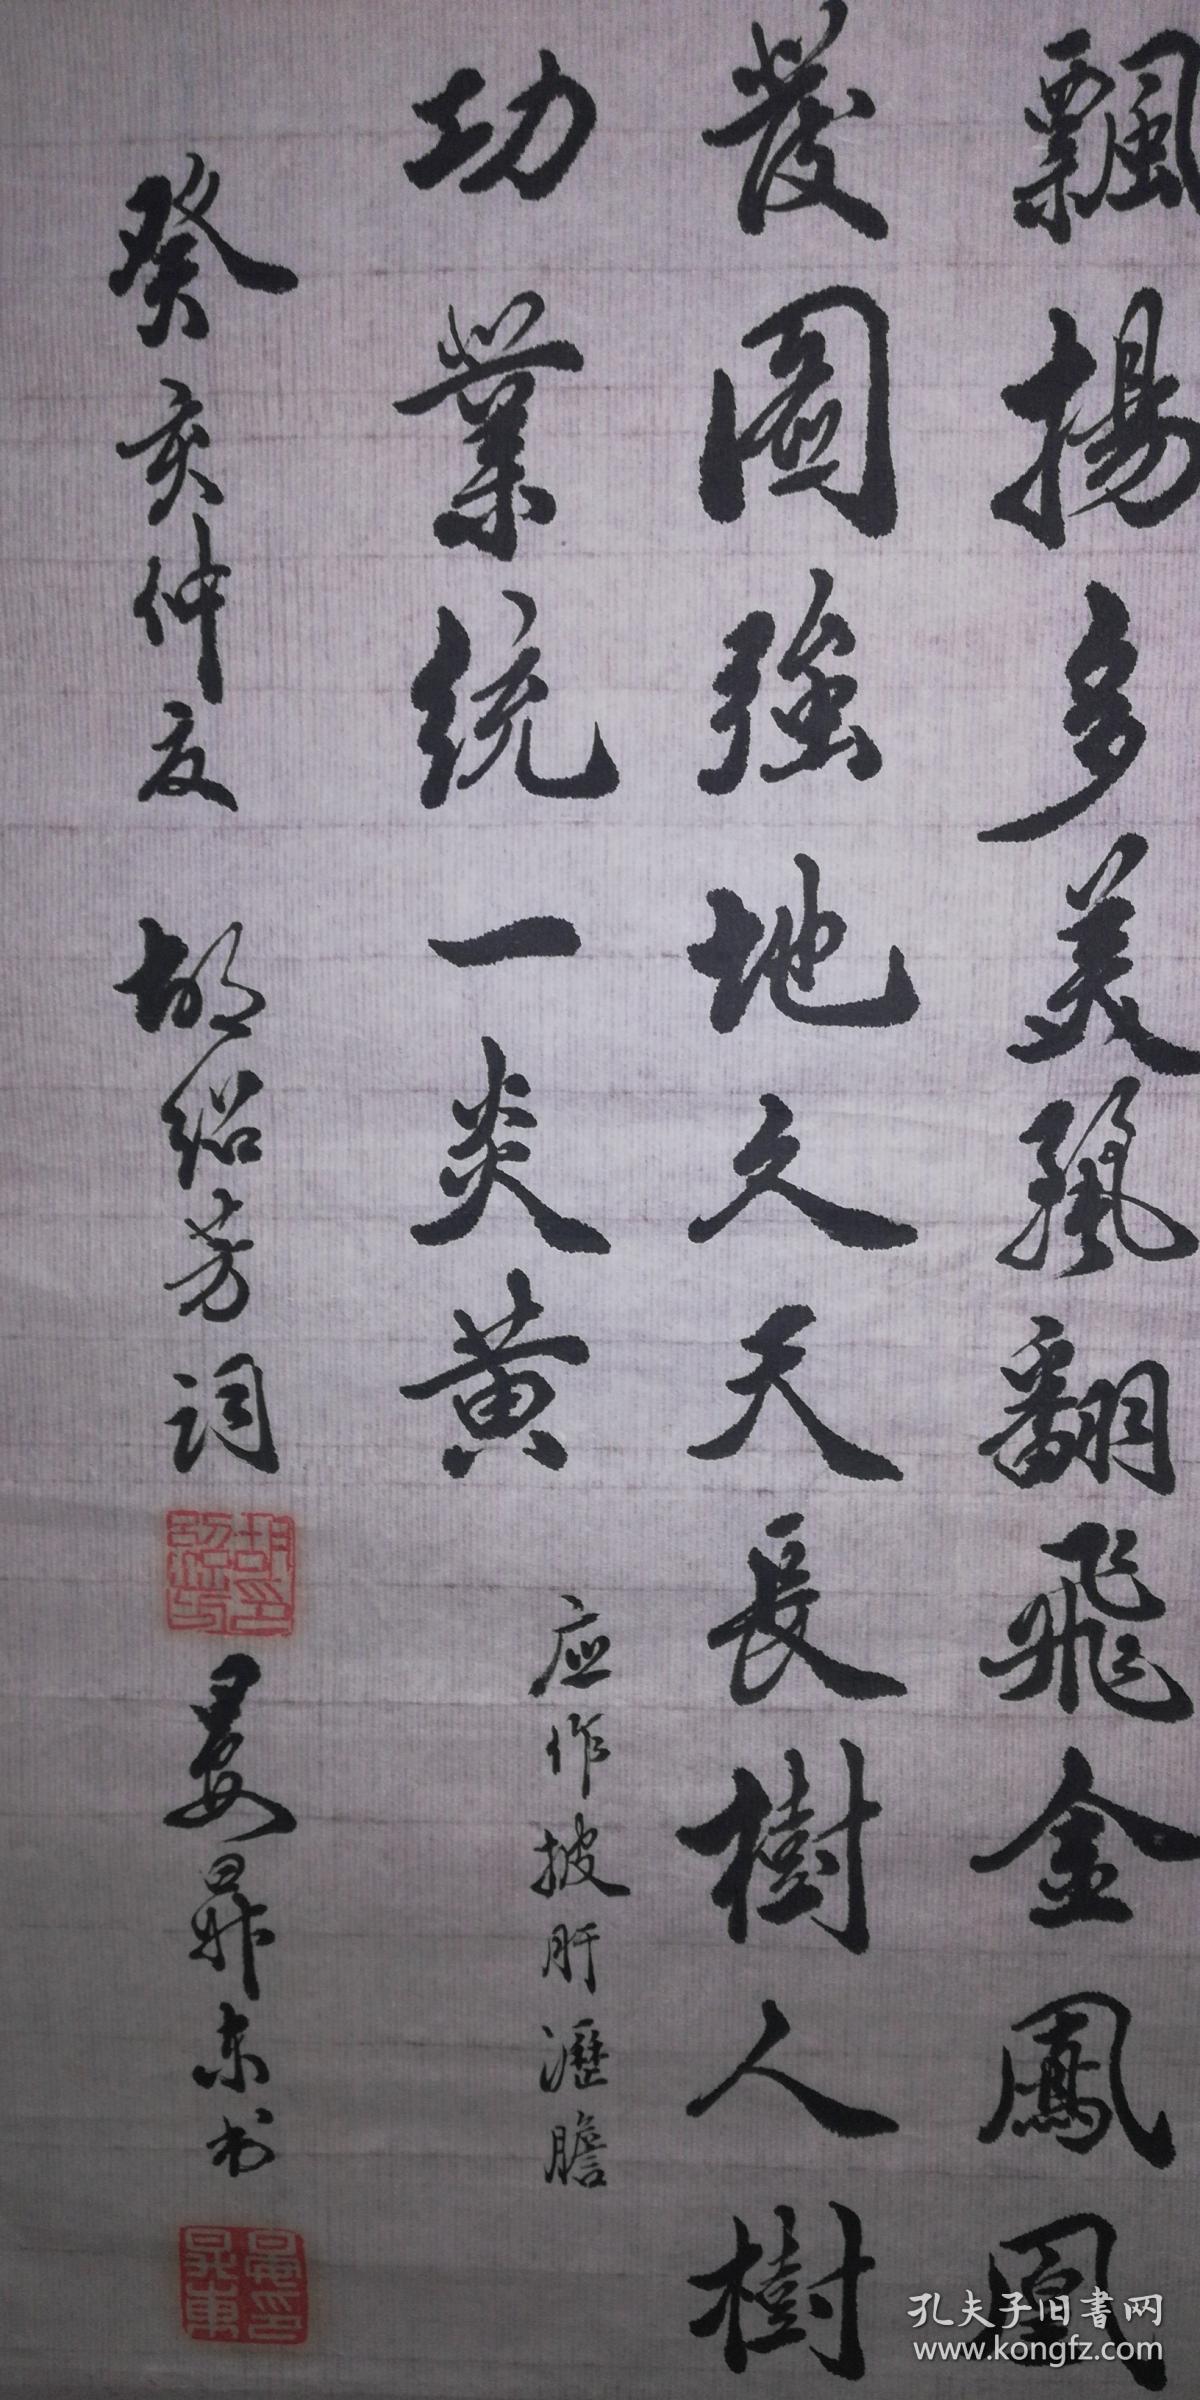 飄揚多美飄翻飛金鳳凰
發圖強地久天長樹人樹
功業统一炎黄
应作披肝瀝膽
癸亥仲夏 胡绍芳词
胡绍芳印
晏昇东书
晏昇東印
孔夫子旧書网
www.kongfz.com